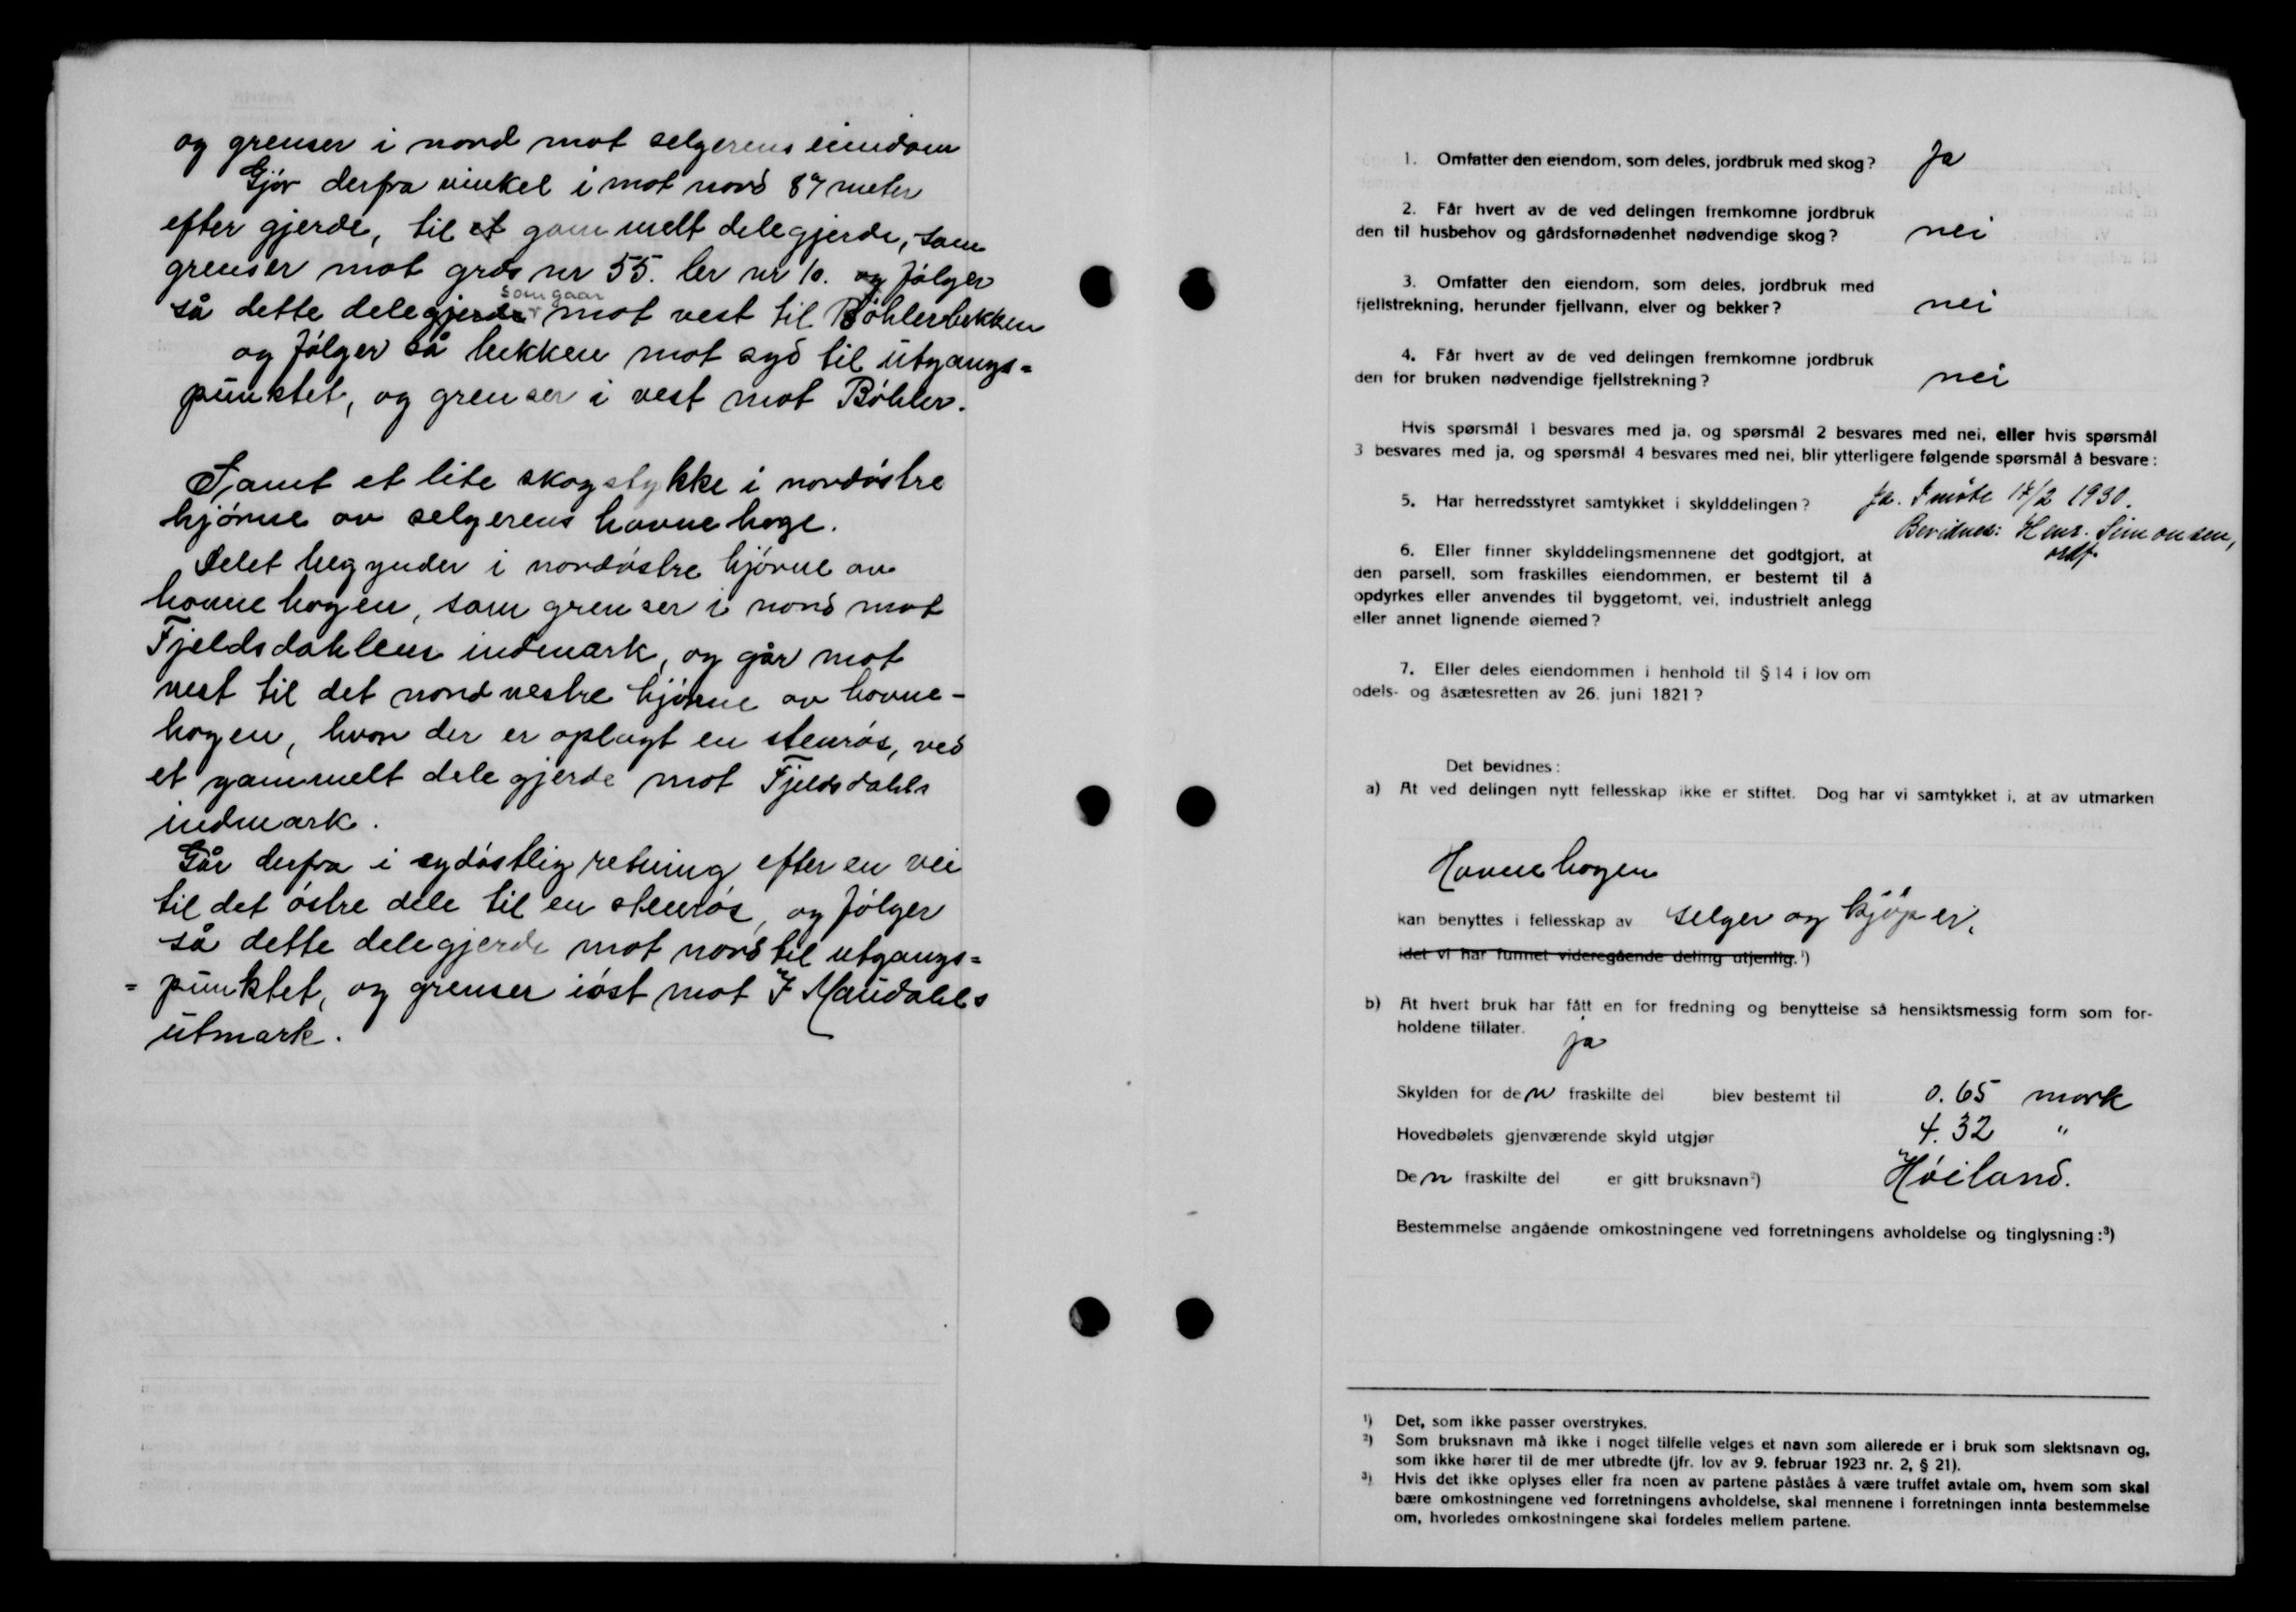 og grenser i nord mot selgerens eiendom
Gjør derfra vinkel i mot nord 87 meter
efter gjerde, til et gammelt delegjerde, som
grenser mot grds nr 55. br nr 10. og følger
så dette delegjerde som gaar mot vest til Bøhlerbekken
og følger så bekken mot syd til utgangs=
punktet, og grenser i vest mot Bøhler.
Samt et lite skogstykke i nordøstre
hjørne av selgerens havnehage.
Delet begynder i nordøstre hjørne av
havnehagen, som grenser i nord mot
Fjeldsdahlens indmark, og går mot
vest til det nordvestre hjørne av havne-
hagen, hvor der er oplagt en stenrøs, ved
et gammelt delegjerde mot Fjeldsdahls
indmark.
Går derfra i sydøstlig retning efter en vei
til det østre dele til en stenrøs, og følger
så dette delegjerde mot nord til utgangs=
= punktet, og grenser i øst mot J Maudahls
utmark.
1. Omfatter den eiendom, som deles, jordbruk med skog? Ja
2. Får hvert av de ved delingen fremkomne jordbruk
den til husbehov og gårdsfornødenhet nødvendige skog? nei
3. Omfatter den eiendom, som deles, jordbruk med
fjellstrekning, herunder fjellvann, elver og bekker? nei
4. Får hvert av de ved delingen fremkomne jordbruk
den for bruken nødvendige fjellstrekning? nei
Hvis spørsmål 1 besvares med ja, og spørsmål 2 besvares med nei, eller hvis spørsmål
3 besvares med ja, og spørsmål 4 besvares med nei, blir ytterligere følgende spørsmål å besvare:
5. Har herredsstyret samtykket i skylddelingen? Ja. I møte 17/2 1930.
Bevidnes: Hens. Simonsen,
ordf.
6. Eller finner skylddelingsmennene det godtgjort, at
den parsell, som fraskilles eiendommen, er bestemt til å
opdyrkes eller anvendes til byggetomt, vei, industrielt anlegg
eller annet lignende øiemed?
7. Eller deles eiendommen i henhold til § 14 i lov om
odels- og åsætesretten av 26. juni 1821?
Det bevidnes:
a) At ved delingen nytt fellesskap ikke er stiftet. Dog har vi samtykket i, at av utmarken
Havnehagen
kan benyttes i fellesskap av selger og kjøper,
idet vi har funnet videregående deling utjenlig.¹)
b) At hvert bruk har fått en for fredning og benyttelse så hensiktsmessig form som for-
holdene tillater.
ja
Skylden for den fraskilte del blev bestemt til 0.65 mark
Hovedbølets gjenværende skyld utgjør 4.32 "
Den fraskilte del er gitt bruksnavn²) Høiland.
Bestemmelse angående omkostningene ved forretningens avholdelse og tinglysning:³)
¹) Det, som ikke passer overstrykes.
²) Som bruksnavn må ikke i noget tilfelle velges et navn som allerede er i bruk som slektsnavn og,
som ikke hører til de mer utbredte (jfr. lov av 9. februar 1923 nr. 2, § 21).
³) Hvis det ikke oplyses eller fra noen av partene påståes å være truffet avtale om, hvem som skal
bære omkostningene ved forretningens avholdelse, skal mennene i forretningen innta bestemmelse
om, hvorledes omkostningene skal fordeles mellem partene.